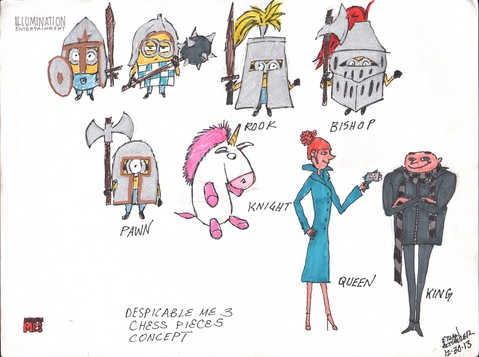 ILLUMINATION
ENTERTAINMENT
ROOK
BISHOP
PAWN
KNIGHT
QUEEN
KING
DESPICABLE ME 3
CHESS PIECES
CONCEPT
12-20-13